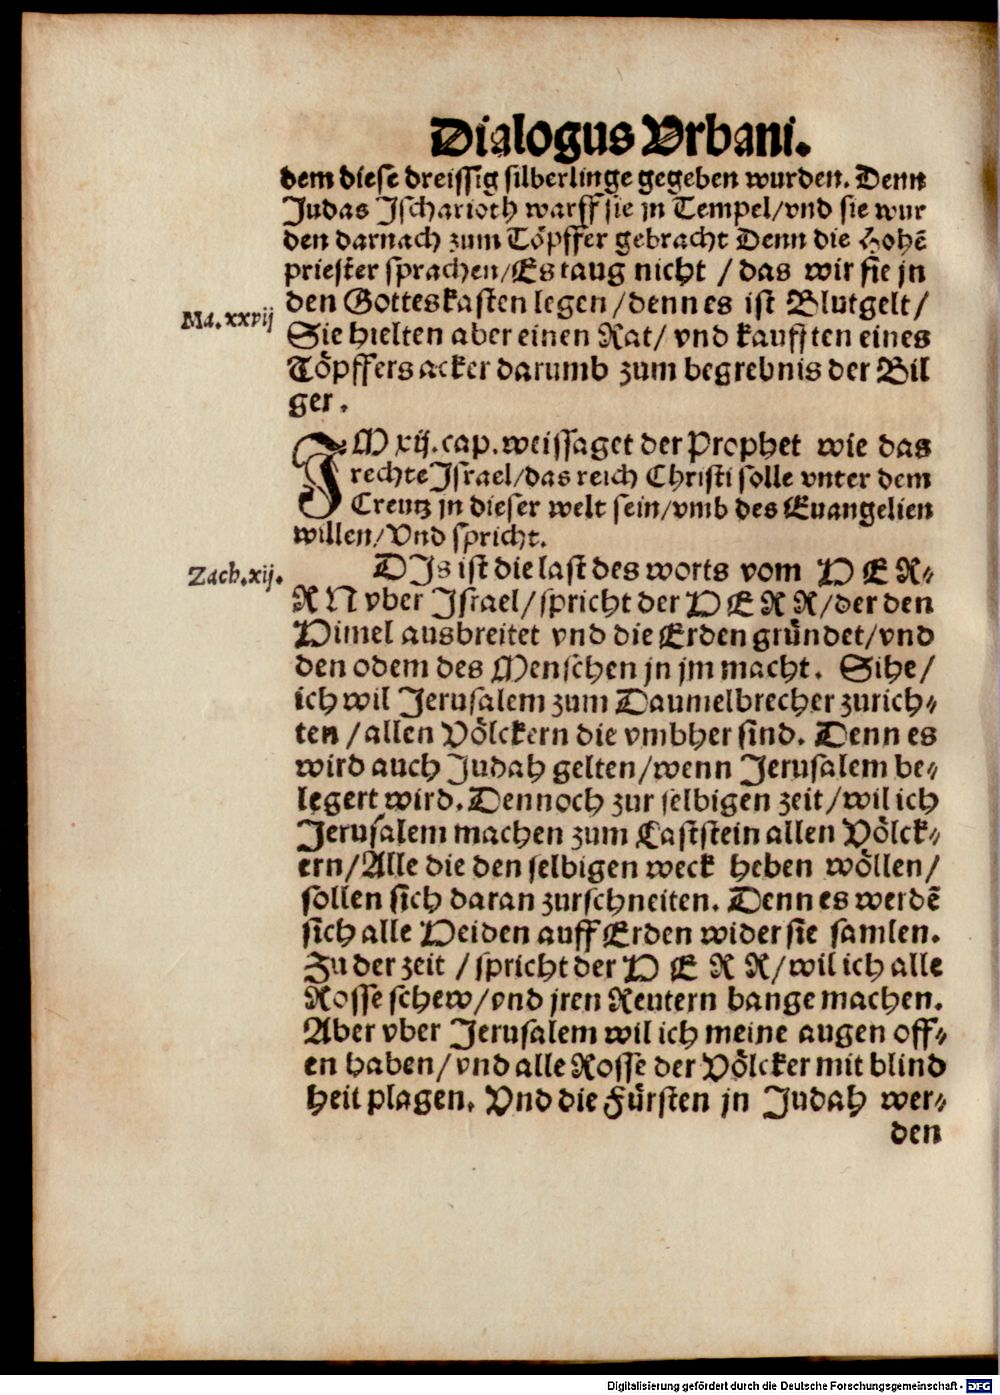 Dialogus Vrbani.
dem diese dreissig silberlinge gegeben wurden. Denn
Judas Jscharioth warff sie jn Tempel/vnd sie wur
den darnach zum Töpffer gebracht Denn die Hohē
priester sprachen/Es taug nicht / das wir sie jn
den Gotteskasten legen/denn es ist Blutgelt/
Ma.xxvij
Sie hielten aber einen Rat/ vnd kaufften eines
Töpffers acker darumb zum begrebnis der Bil
ger.
JM xij.cap.weissaget der Prophet wie das
rechte Jsrael/das reich Christi solle vnter dem
Creutz jn dieser welt sein/vmb des Euangelien
willen/Vnd spricht.
Zach.xij.
DJs ist die last des worts vom HER⸗
RN vber Jsrael/spricht der HERR/der den
Himel ausbreitet vnd die Erden gründet/vnd
den odem des Menschen jn jm macht. Sihe/
ich wil Jerusalem zum Daumelbrecher zurich⸗
ten/allen Völckern die vmbher sind. Denn es
wird auch Judah gelten/wenn Jerusalem be⸗
legert wird. Dennoch zur selbigen zeit/wil ich
Jerusalem machen zum Laststein allen Völck⸗
ern/Alle die den selbigen weck heben wöllen/
sollen sich daran zurschneiten. Denn es werdē
sich alle Heiden auff Erden wider sie samlen.
Zu der zeit / spricht der HERR/wil ich alle
Rosse schew/vnd jren Reutern bange machen.
Aber vber Jerusalem wil ich meine augen off⸗
en haben/vnd alle Rosse der Völcker mit blind
heit plagen. Vnd die Fürsten jn Judah wer⸗
den
Digitalisierung gefördert durch die Deutsche Forschungsgemeinschaft - DFG